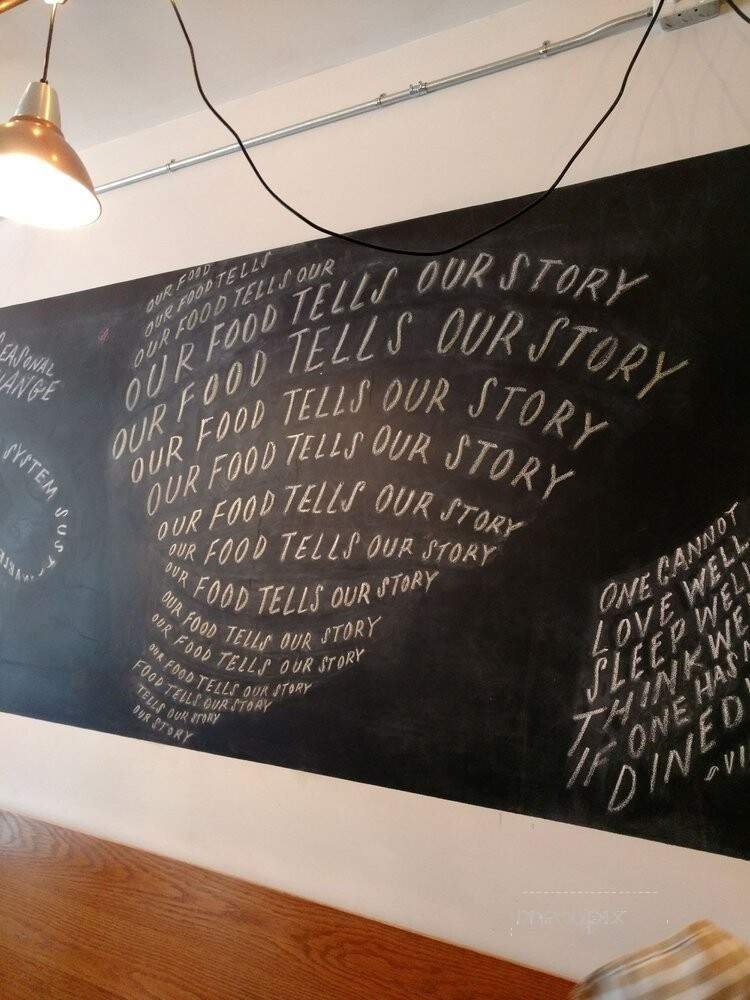 SEASONAL
SYSTEM SUST
OUR FOOD
OUR FOOD TELLS
OUR FOOD TELLS OUR
OUR FOOD TELLS OUR STORY
OUR FOOD TELLS OUR STORY
OUR FOOD TELLS OUR STORY
OUR FOOD TELLS OUR STORY
OUR FOOD TELLS OUR STORY
OUR FOOD TELLS OUR STORY
OUR FOOD TELLS OUR STORY
OUR FOOD TELLS OUR STORY
OUR FOOD TELLS OUR STORY
OUR FOOD TELLS OUR STORY
FOOD TELLS OUR STORY
TELLS OUR STORY
OUR STORY
ONE CANNOT
LOVE WELL
SLEEP WELL
THINK WE
IF ONE HAS N
DINED
~VI
menupix